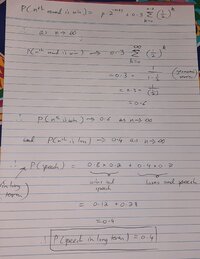 P(nth round is win) = p·2^-(n-1) + 0.3 Σ_{k=0}^{n-2} (1/2)^k
∴ as n→∞
P(nth round is win) → 0.3 Σ_{k=0}^{∞} (1/2)^k
→ 0.3 · 1/(1-1/2) (geometric
series)
= 0.3 · 1/(1/2)
= 0.6
∴ P(nth is win) → 0.6 as n→∞
and P(nth is loss) → 0.4 as n→∞
∴ P(speech) = 0.6×0.2 + 0.4×0.7
(in long
term)
wins and
speech
loses and speech
= 0.12 + 0.28
= 0.4
∴ P(speech in long term) = 0.4